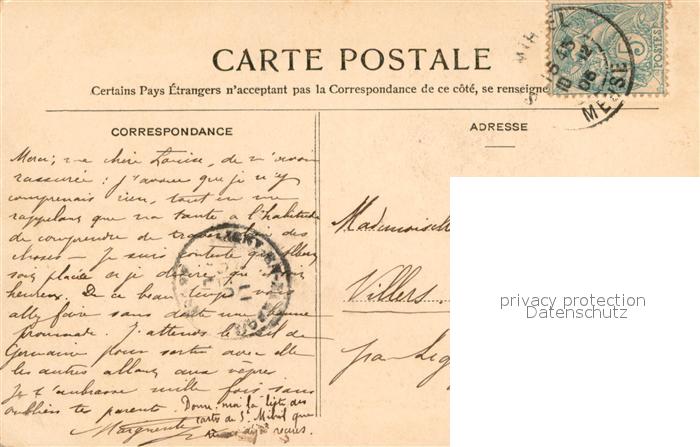 CARTE POSTALE
Certains Pays Étrangers n'acceptant pas la Correspondance de ce côté, se renseigne
CORRESPONDANCE
Merci, ma chère Louise, de m'avoir
rassurée; j'avoue que je n'y
comprenais rien, tout en me
rappelant que ma tante a l'habitude
de comprendre de travers bien des
choses — Je suis contente que
soit placée et je désire que
heureux. De ce beau temps vous
allez faire sans doute une bonne
promenade. J'attends
Germaine pour sortir avec elle
les autres allant aux vêpres
Je t'embrasse mille fois sans
oublier tes parents. Donne-moi la liste des
cartes de St Mihiel que
Marguerite
déjà reçues.
ADRESSE
Mademoiselle
Villers
par Lig
5
POSTES
MEUSE
LIGNY-EN-
privacy protection
Datenschutz